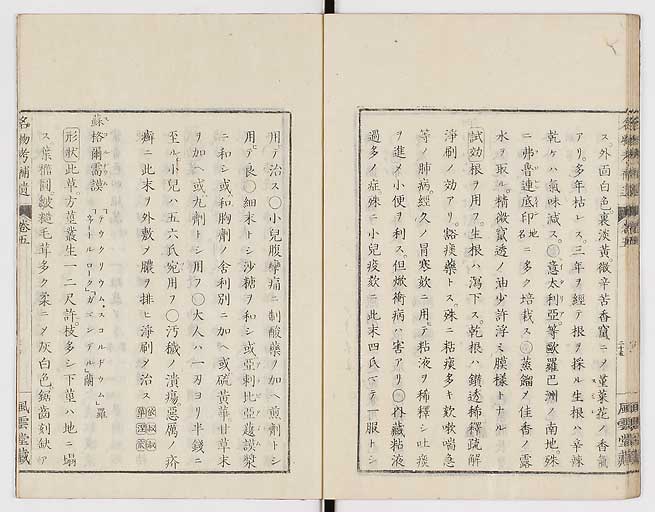 ス外面白色裏淡黄微辛苦香竄ニノ菫菜花ノ香氣
アリ多年枯レス三年ヲ經テ根ヲ採ル生根ハ辛辣
乾ケハ氣味減ス○意太利亞等歐羅巴洲ノ南地殊
ニ弗魯連底印地名ニ多ク培栽ス○蒸餾ノ佳香ノ露
水ヲ取ル精微竄透ノ油少許浮ミ膜樣トナル
試効根ヲ用フ生根ハ瀉下ス乾根ハ鑽透稀釋疏解
淨刷ノ効アリ豁痰藥トス殊ニ粘痰多キ欬嗽喘急
等ノ肺病經久ノ冒寒欬ニ用テ粘液ヲ稀釋シ吐痰
ヲ進メ小便ヲ利ス但焮衝病ハ害アリ○内藏粘液
過多ノ症殊ニ小兒痰欬ニ此末四氏下テ一服トシ
用テ治ス○小兒腹攣痛ニ制酸藥ヲ加ヘ煎劑トシ
用テ良○細末トシ沙糖ヲ和シ或亞剌比亞護謨漿
ニ和シ或和胸劑ノ舍利別ニ加ヘ或硫黄華甘草末
ヲ加ヘ或丸劑トシ用フ○大人ハ一刃ヨリ半錢ニ
至ル小兒ハ五六氏宛用フ○汚穢ノ潰瘍惡厲ノ疥
癬ニ此末ヲ外敷ノ膿ヲ排ヒ淨刷タ治ス
蘇格爾雷謨
形狀此草方莖叢生一二尺許枝多シ下莖ハ地ニ塌
ス葉橢圓皺縫毛茸多ク柔ニノ灰白色鋸齒刻缺ア
名物考補遺
卷五
風雲堂藏
風雲堂藏